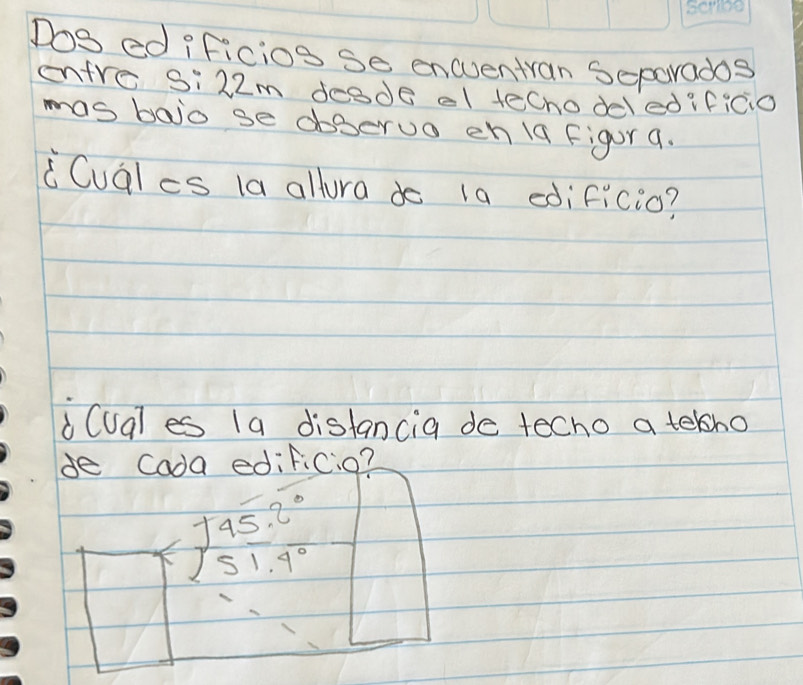 Scribe
Dos edificios se encuentran separados
entre si 22m desde el techo del edificio
mas bajo se observa en la figura.
¿Cuál es la altura de la edificio?
¿Cual es la distancia de techo a techo
de cada edificio?
45.2°
51.4°